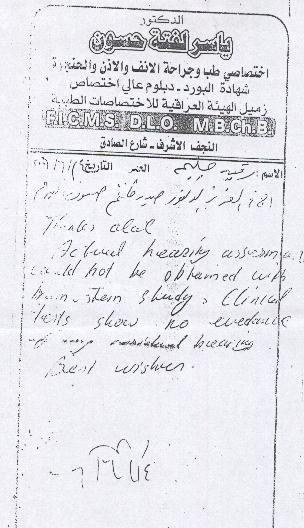 الدكتور
ياسر لفتة حسون
اختصاصي طب وجراحة الانف والاذن والحنجرة
شهادة البورد - دبلوم عالي اختصاص
زميل الهيئة العراقية للاختصاصات الطبية
F.I.C.M.S D.L.O. M.B.Ch.B.
النجف الاشرف - شارع الصادق
الاسم: العمر التاريخ
Thanks alot
Actual hearing assessment
could not be obtained with
brain stem study. Clinical
tests show no evedance
of any hearing
Best wishes